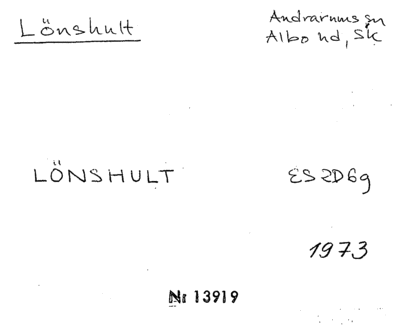 Lönshult
Andrarums sn
Albo hd, Sk
LÖNSHULT
ES 2D6g
1973
Nr 13919